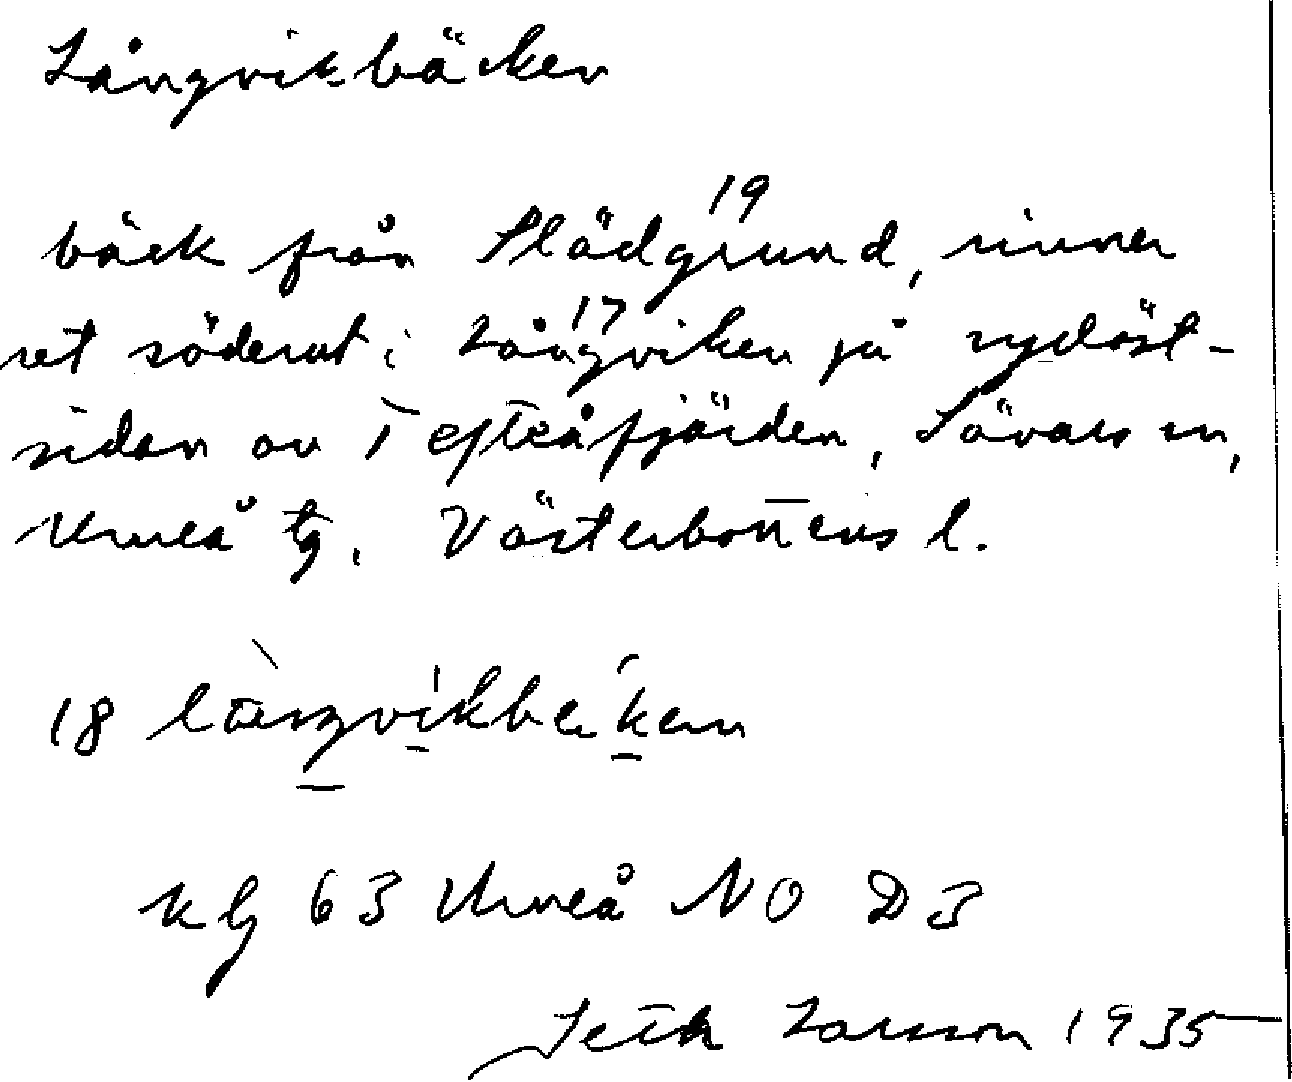 Långvikbäcken
19
bäck från Slädgrund, rinner
17
ret söderut i Långviken på sydöst-
sidan av Tefteåfjärden, Sävars sn,
Umeå tg, Västerbottens l.
18
kbl 63 Umeå NO D3
Seth Larsson 1935